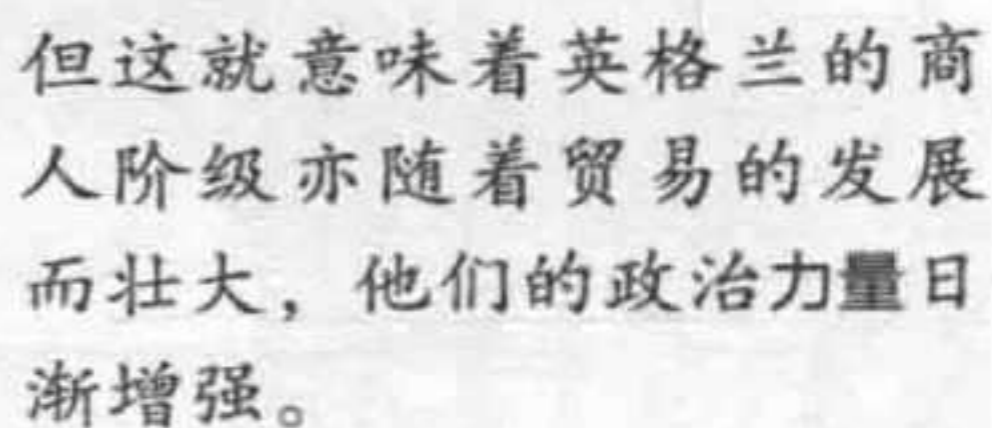 但这就意味着英格兰的商
人阶级亦随着贸易的发展
而壮大，他们的政治力量日
渐增强。